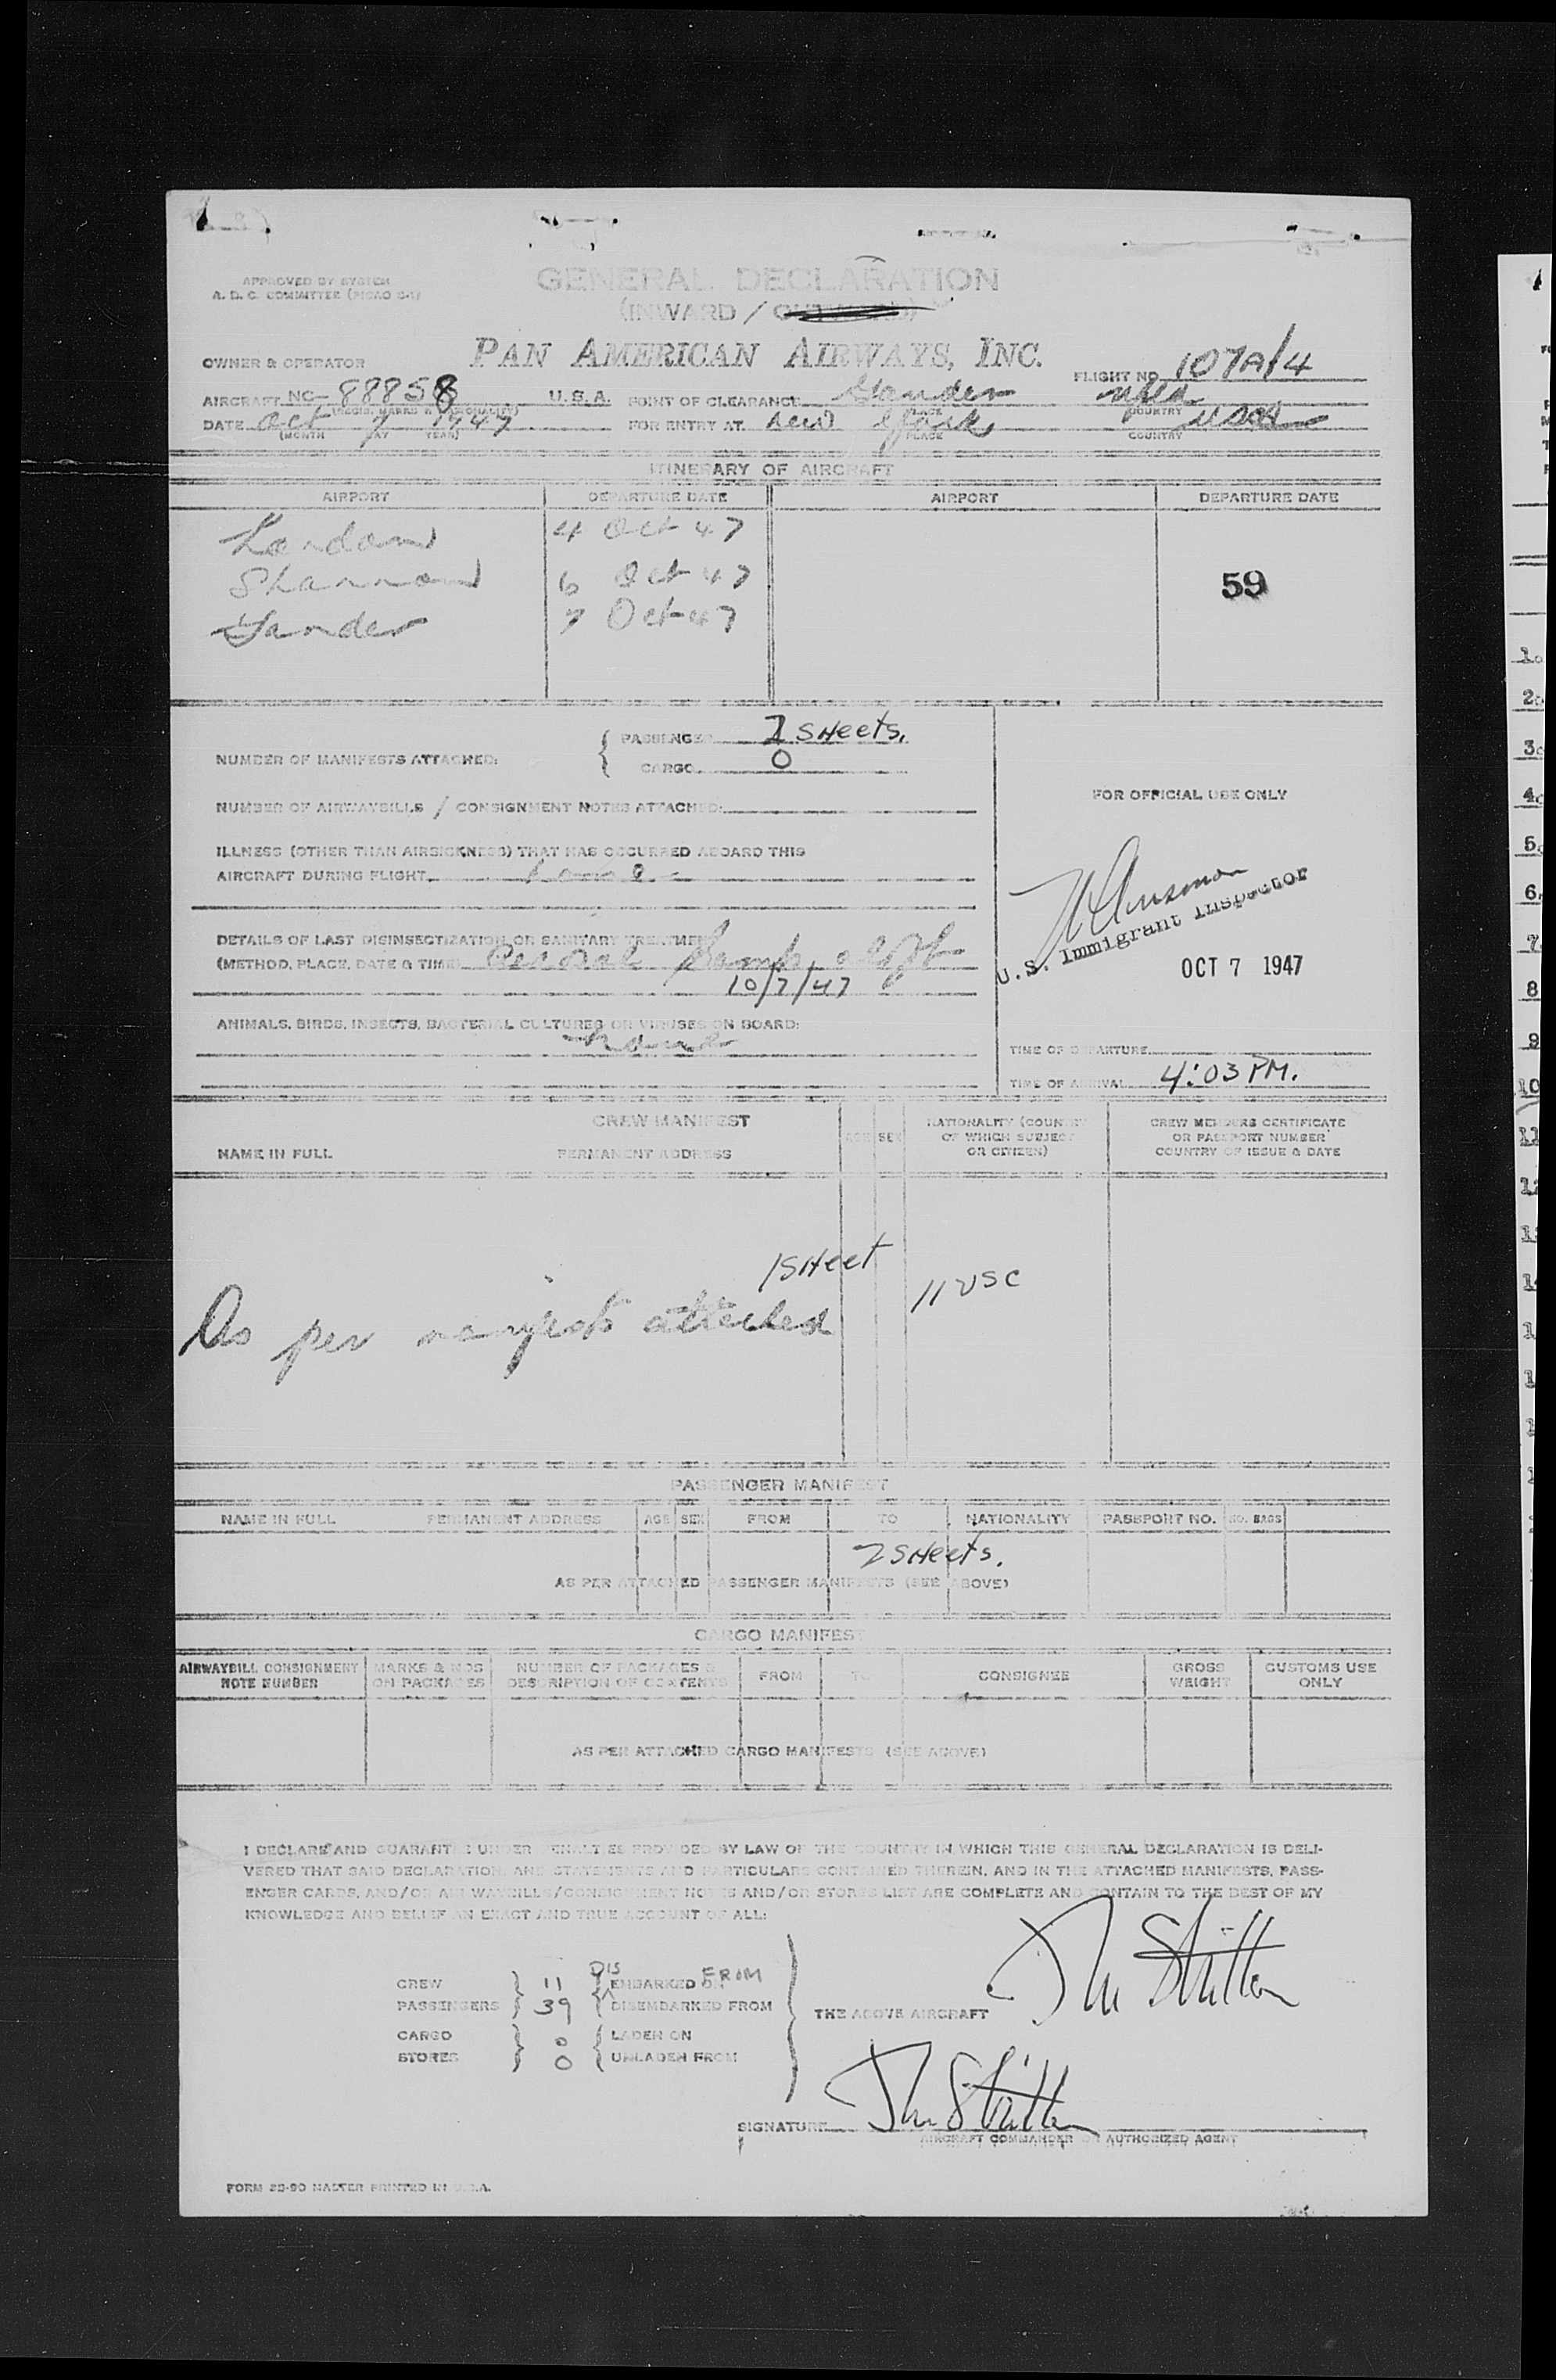 APPROVED BY SYSTEM
A. D. C. COMMITTEE (PICAO
GENERAL DECLARATION
(INWARD /
OWNER & OPERATOR PAN AMERICAN AIRWAYS, INC. FLIGHT NO. 107A/4
AIRCRAFT NC- 88858 U.S.A. POINT OF CLEARANCE Gander Nfld
(REGIS. MARKS & NATIONALITY) PLACE COUNTRY
DATE Oct 7 1947 FOR ENTRY AT New York USA
(MONTH DAY YEAR) PLACE COUNTRY
ITINERARY OF AIRCRAFT
AIRPORT DEPARTURE DATE AIRPORT DEPARTURE DATE
London 4 Oct 47
Shannon 6 Oct 47 59
Gander 7 Oct 47
NUMBER OF MANIFESTS ATTACHED: PASSENGER 2 SHeets.
CARGO 0
NUMBER OF AIRWAYBILLS / CONSIGNMENT NOTES ATTACHED:
FOR OFFICIAL USE ONLY
ILLNESS (OTHER THAN AIRSICKNESS) THAT HAS OCCURRED ABOARD THIS
AIRCRAFT DURING FLIGHT. none
U.S. Immigrant Inspector
OCT 7 1947
DETAILS OF LAST DISINSECTIZATION OR SANITARY TREATMENT
(METHOD, PLACE, DATE & TIME) Aerosol Bomb
10/7/47
ANIMALS, BIRDS, INSECTS, BACTERIAL CULTURES OR VIRUSES ON BOARD:
none
TIME OF DEPARTURE
TIME OF ARRIVAL 4:03 PM.
CREW MANIFEST
NAME IN FULL PERMANENT ADDRESS AGE SEX NATIONALITY (COUNTRY OF WHICH SUBJECT OR CITIZEN) CREW MEMBERS CERTIFICATE OR PASSPORT NUMBER COUNTRY OF ISSUE & DATE
1 SHeet
11 USC
As per manifests attached
PASSENGER MANIFEST
NAME IN FULL PERMANENT ADDRESS AGE SEX FROM TO NATIONALITY PASSPORT NO. NO. BAGS
2 SHeets.
AS PER ATTACHED PASSENGER MANIFESTS (SEE ABOVE)
CARGO MANIFEST
AIRWAYBILL CONSIGNMENT NOTE NUMBER MARKS & NOS ON PACKAGES NUMBER OF PACKAGES & DESCRIPTION OF CONTENTS FROM TO CONSIGNEE GROSS WEIGHT CUSTOMS USE ONLY
AS PER ATTACHED CARGO MANIFESTS (SEE ABOVE)
I DECLARE AND GUARANTEE UNDER PENALTIES PROVIDED BY LAW OF THE COUNTRY IN WHICH THIS GENERAL DECLARATION IS DELI-
VERED THAT SAID DECLARATION AND STATEMENTS AND PARTICULARS CONTAINED THEREIN, AND IN THE ATTACHED MANIFESTS, PASS-
ENGER CARDS, AND/OR AIR WAYBILLS/CONSIGNMENT NOTES AND/OR STORES LIST ARE COMPLETE AND CONTAIN TO THE BEST OF MY
KNOWLEDGE AND BELIEF AN EXACT AND TRUE ACCOUNT OF ALL:
CREW 11 DIS EMBARKED ON FROM
PASSENGERS 39 DISEMBARKED FROM
THE ABOVE AIRCRAFT
CARGO 0 LADEN ON
STORES 0 UNLADEN FROM
SIGNATURE
AIRCRAFT COMMANDER OR AUTHORIZED AGENT
FORM 29-90 MASTER PRINTED IN U.S.A.